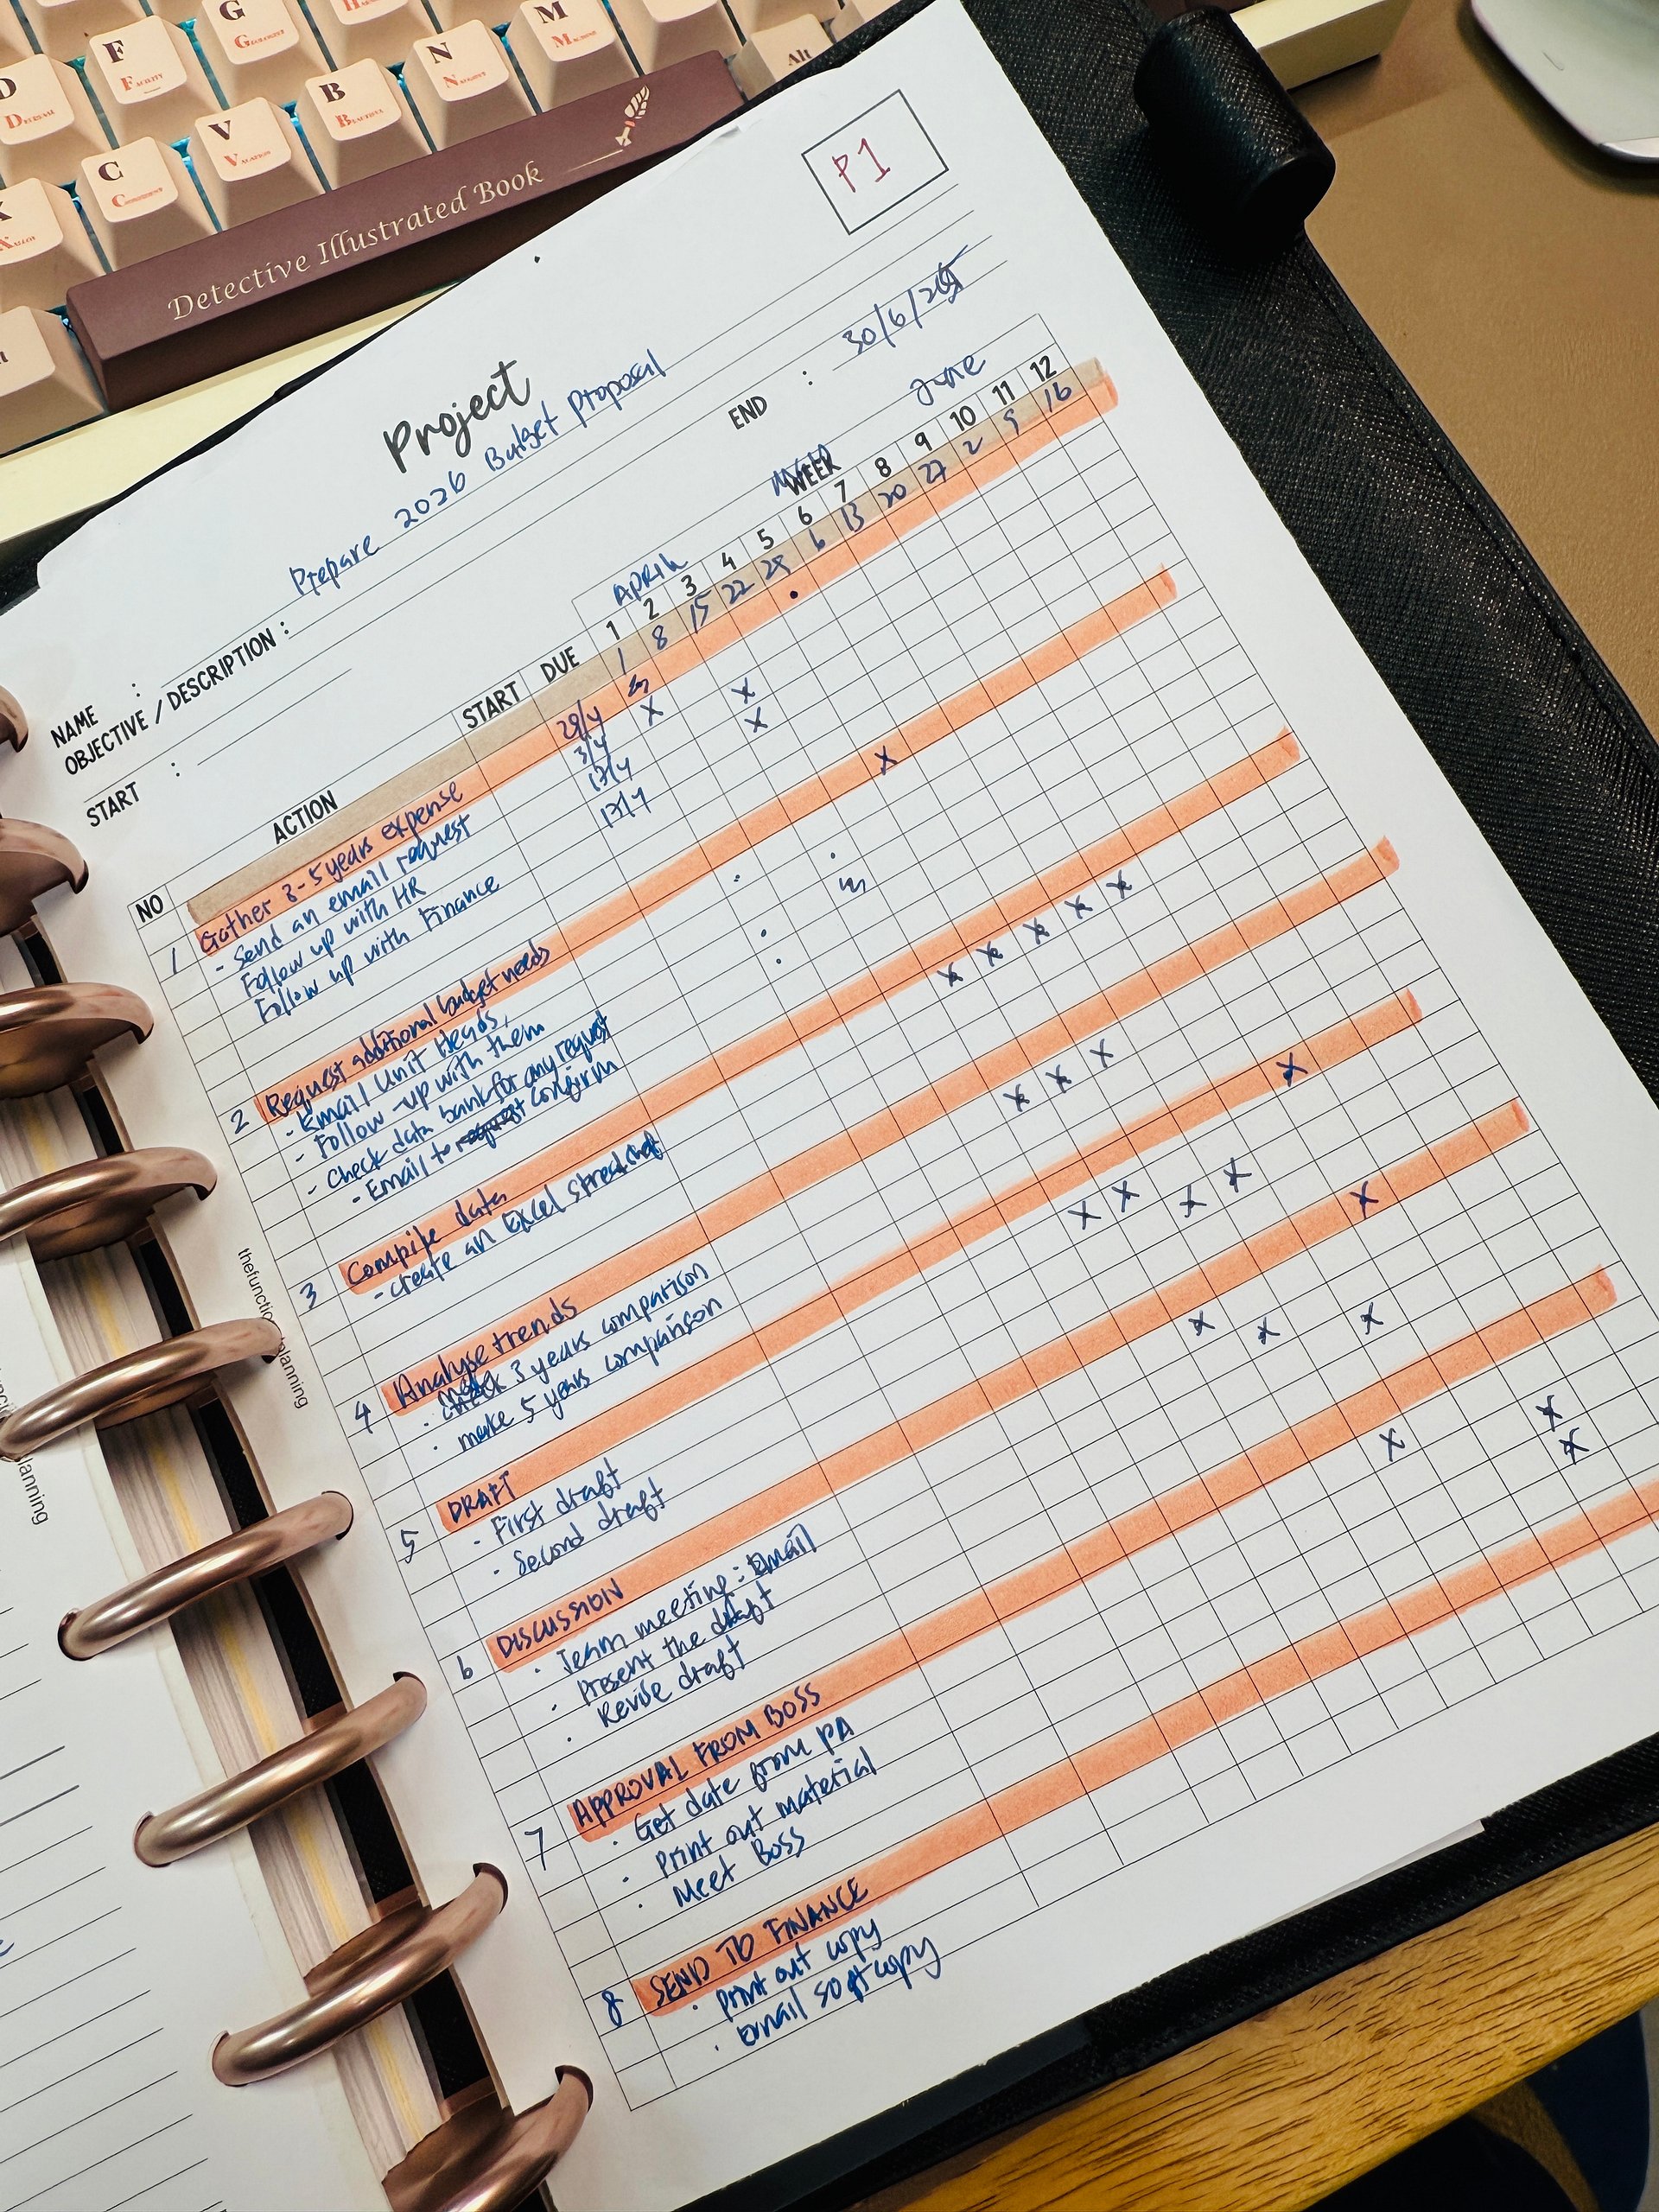 F
G
N
M
Alt
D
V
B
C
Detective Illustrated Book
P1
Project
NAME :
Prepare 2026 Budget Proposal
OBJECTIVE / DESCRIPTION :
START :
END : 30/6/
APRIL
WEEK
June
NO ACTION START DUE 1 2 3 4 5 6 7 8 9 10 11 12
1 8 15 22 29 6 13 20 27 2 9 16
1 Gather 3-5 years expense 29/4
- Send an email request 3/4 X
Follow up with HR 17/4 X
Follow up with Finance 17/4 X
2 Request additional budget needs X
- Email Unit Heads,
- Follow-up with them
- Check data bank for any request
- Email to confirm
3 Compile data
- create an Excel spreadsheet X X X X X
4 Analyse trends
3 years comparison X X X
make 5 years comparison
5 DRAFT X
- First draft X X
- Second draft X X
6 DISCUSSION X
Team meeting: Email X
Present the draft X
Revise draft X
7 APPROVAL FROM BOSS
Get date from PA X
Print out material X
Meet Boss X
8 SEND TO FINANCE
Print out copy
Email softcopy
thefunction planning
lanning